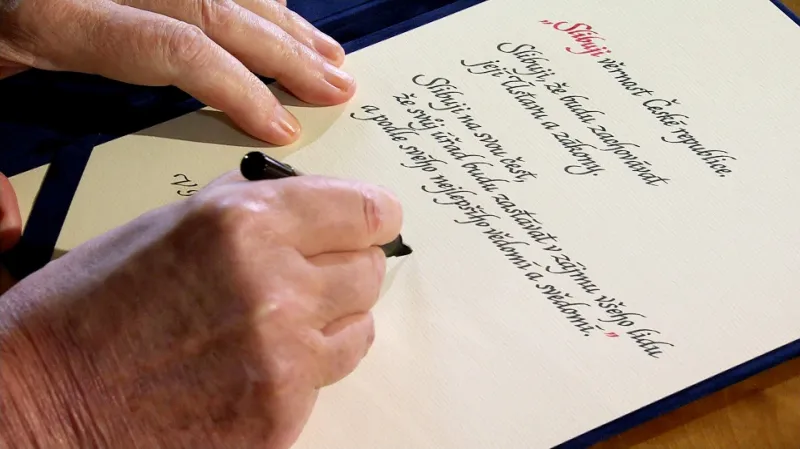 „Slibuji věrnost České republice.
Slibuji, že budu zachovávat
její Ústavu a zákony.
Slibuji na svou čest,
že svůj úřad budu zastávat v zájmu všeho lidu
a podle svého nejlepšího vědomí a svědomí.”
V